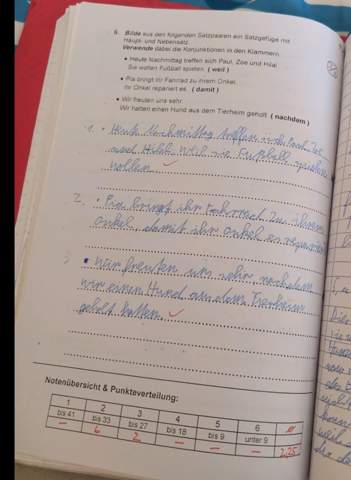 5. Bilde aus den folgenden Satzpaaren ein Satzgefüge mit
Haupt- und Nebensatz.
Verwende dabei die Konjunktionen in den Klammern.
• Heute Nachmittag treffen sich Paul, Zoe und Hilal.
Sie wollen Fußball spielen. ( weil )
• Pia bringt ihr Fahrrad zu ihrem Onkel.
Ihr Onkel repariert es. ( damit )
• Wir freuten uns sehr.
Wir hatten einen Hund aus dem Tierheim geholt. ( nachdem )
1. • Heute Nachmittag treffen sich Paul, Zoe
und Hilal weil sie Fußball spielen
wollen.
2. • Pia bringt ihr Fahrrad zu ihrem
onkel damit ihr onkel es repariert
3 • Wir freuten uns sehr nachdem
wir einen Hund aus dem Tierheim
geholt hatten.
Notenübersicht & Punkteverteilung:
1 2 3 4 5 6
bis 41 bis 33 bis 27 bis 18 bis 9 unter 9